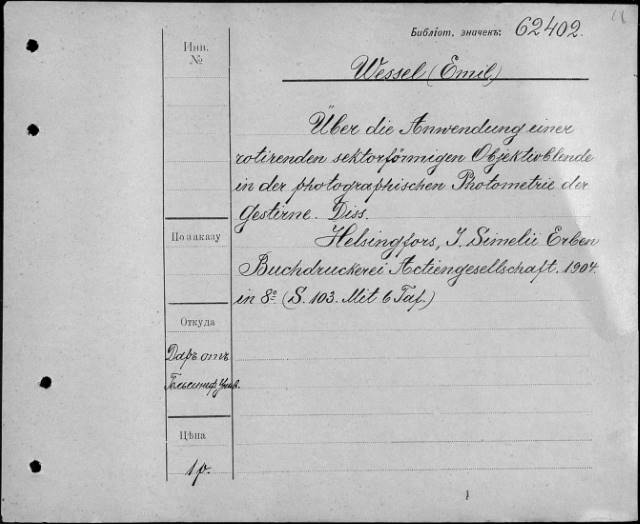 Библіот. значекъ: 62402.
Инв.
№
Wessel (Emil.)
Über die Anwendung einer
rotirenden sektorförmigen Objektivblende
in der photographischen Photometrie der
Gestirne. Diss.
Helsingfors, J. Simelii Erben
Buchdruckerei Actiengesellschaft. 1904.
in 8º (S. 103. Mit 6 Taf.)
По заказу
Откуда
Даръ отъ
Гельсингф. Унив.
Цѣна
1 р.